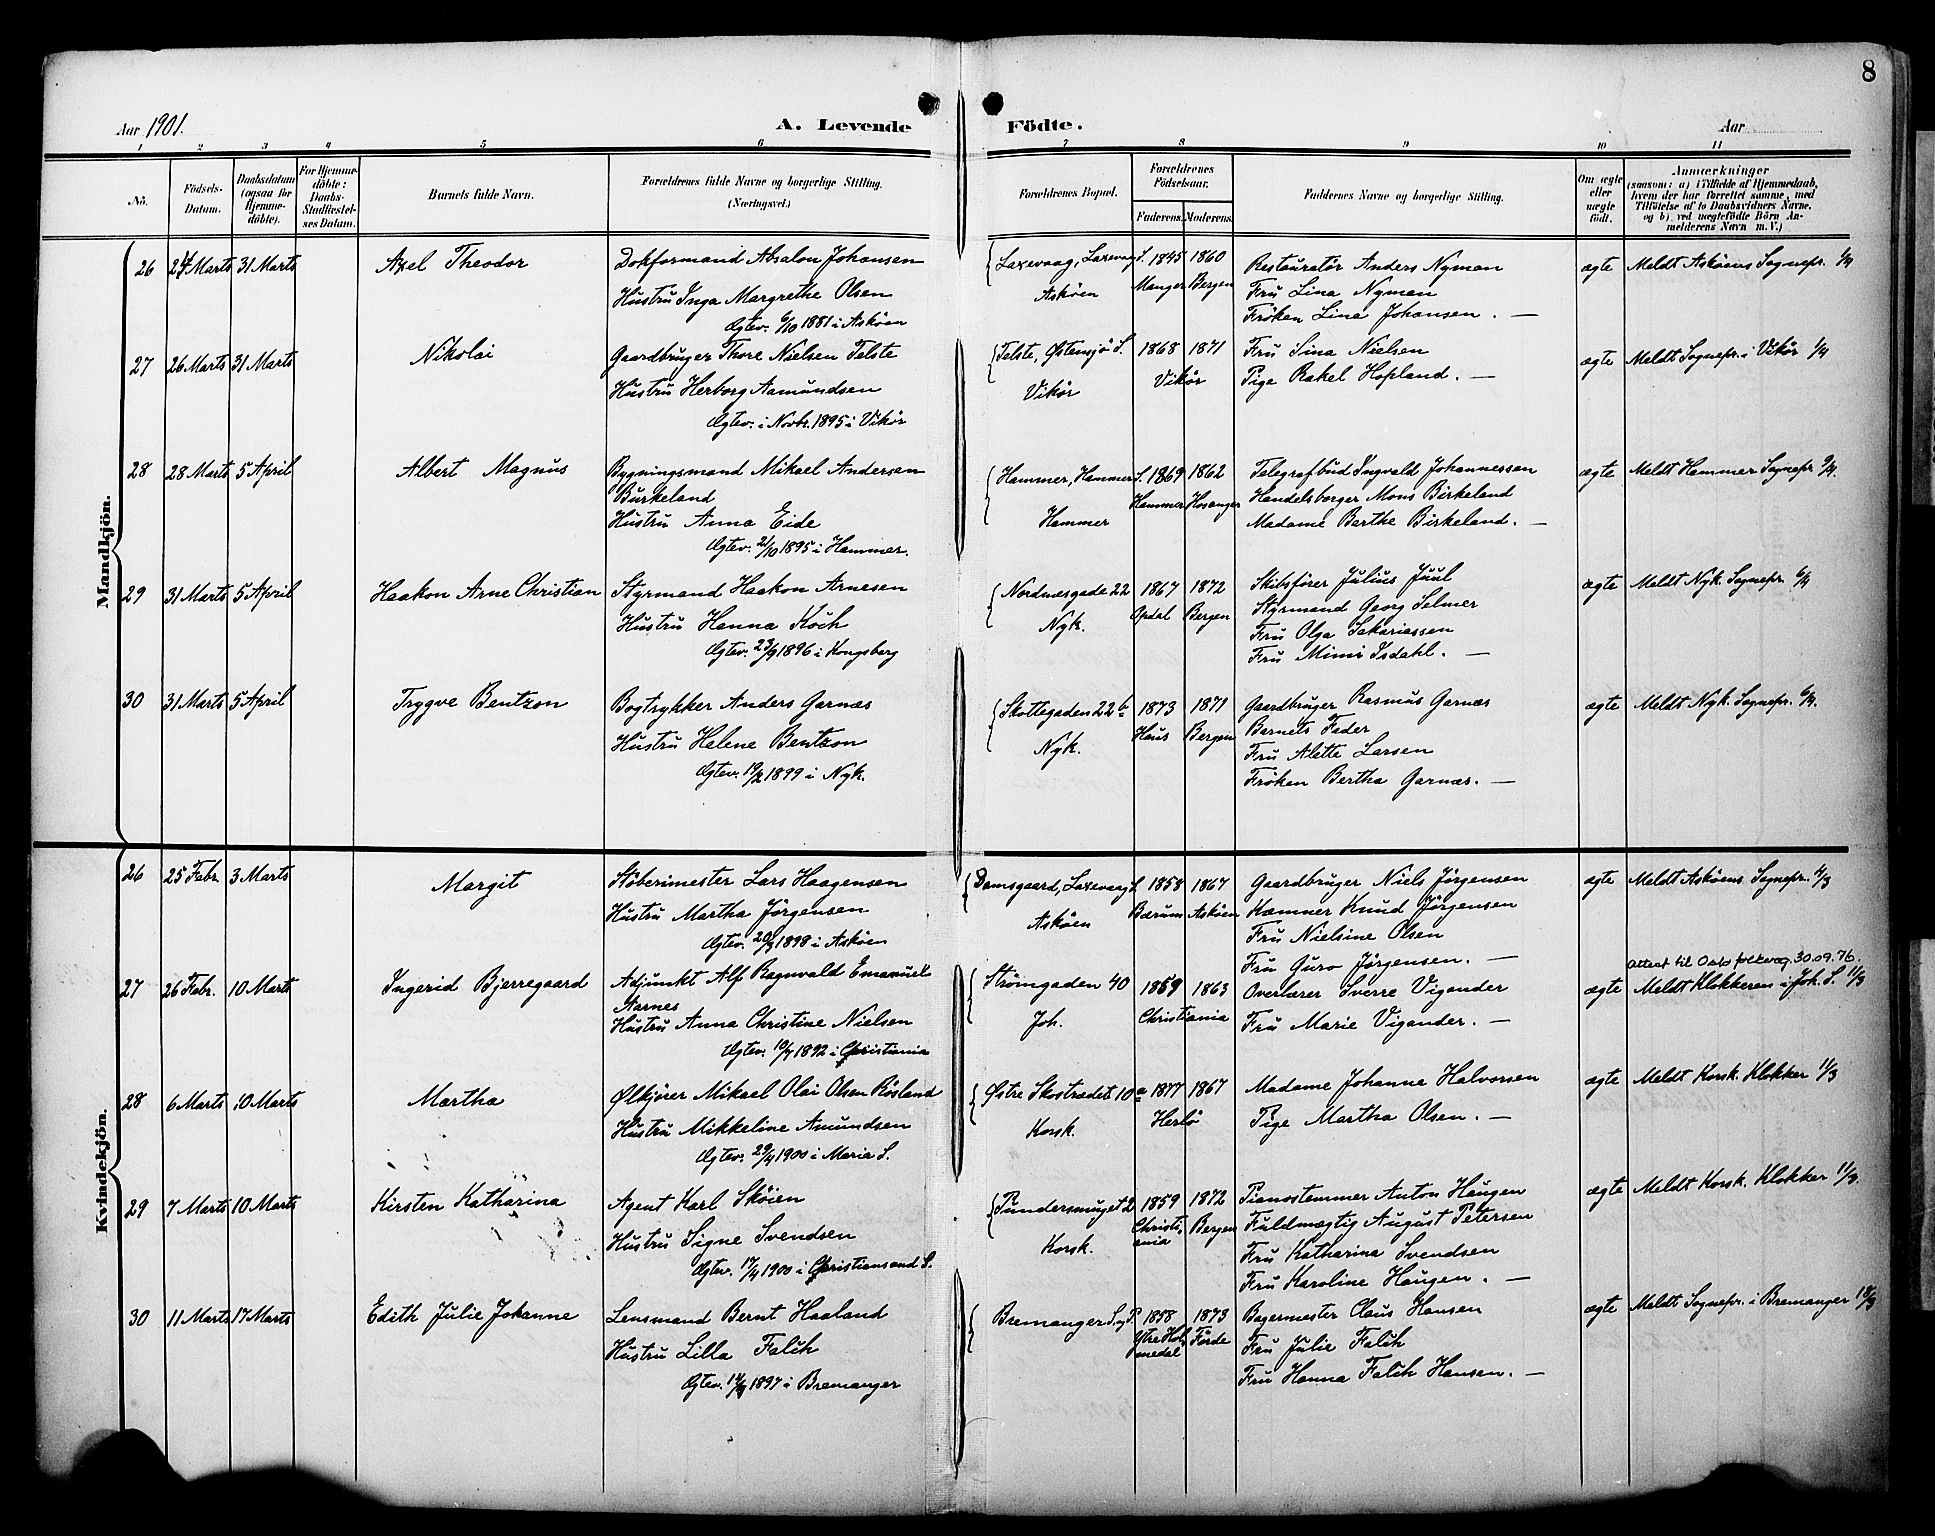 8
Aar 1901.
A. Levende Födte.
Aar
1 2 3 4 5 6 7 8 9 10 11
No.
Födsels-Datum.
Daabsdatum (ogsaa for Hjemmedöbte).
For Hjemmedöbte: Daabs-Stadfæstelses Datum.
Barnets fulde Navn.
Forældrenes fulde Navne og borgerlige Stilling.
(Næringsvei.)
Forældrenes Bopæl.
Forældrenes Födselsaar.
Faderens. Moderens.
Faddernes Navne og borgerlige Stilling.
Om ægte eller uægte födt.
Anmærkninger
(saasom: a) i Tilfælde af Hjemmedaab, hvem der har forrettet samme, med Tilföielse af to Daabsvidners Navne, og b) ved uægtefödte Börn Anmelderens Navn m. V.)
Mandkjön.
26 24 Marts 31 Marts Axel Theodor Dokformand Absalon Johansen Laxevaag, Laxevaag S. 1845 1860 Restauratør Anders Nyman ægte Meldt Askøens Sognepr. 1/4
Hustru Inga Margrethe Olsen Askøen Manger Bergen Fru Lina Nyman
Ægtev. 6/10 1881 i Askøen Frøken Lina Johansen. —
27 26 Marts 31 Marts Nikolai Gaardbruger Thore Nielsen Telste Telste, Østensjø S. 1868 1871 Fru Sina Nielsen ægte Meldt Sognepr. i Vikør 1/4
Hustru Herborg Aamundsen Vikør Vikør Pige Rakel Hopland. —
Ægtev. i Novbr. 1895 i Vikør
28 28 Marts 5 April Albert Magnus Bygningsmand Mikael Andersen Hammer, Hammer S. 1869 1862 Telegrafbud Ingvald Johannessen ægte Meldt Hammer Sognepr. 9/4.
Burkeland Hammer Hosanger Handelsborger Mons Birkeland
Hustru Anna Eide Hammer Madame Berthe Birkeland. —
Ægtev. 21/10 1895 i Hammer.
29 31 Marts 5 April Haakon Arne Christian Styrmand Haakon Arnesen Nordnæsgade 22 1867 1872 Skibsfører Julius Juul ægte Meldt Nyk. Sognepr. 6/4
Hustru Hanna Koch Nyk. Opdal Bergen Styrmand Georg Selmer
Ægtev. 23/9 1896 i Kongsberg Fru Olga Sakariassen
Fru Mimi Isdahl. —
30 31 Marts 5 April Trygve Bentzon Bogtrykker Anders Garnæs Skottegaden 22 b 1873 1871 Gaardbruger Rasmus Garnæs ægte Meldt Nyk. Sognepr. 6/4.
Hustru Helene Bentzon Nyk. Haus Bergen Barnets Fader
Ægtev. 19/2 1899 i Nyk. Fru Alette Larsen
Frøken Bertha Garnæs. —
Kvindekjön.
26 25 Febr. 3 Marts Margit Støberimester Lars Haagensen Damsgaard, Laxevaag S. 1858 1867 Gaardbruger Niels Jørgensen ægte Meldt Askøens Sognepr. 4/3
Hustru Martha Jørgensen Askøen Bærum Askøen Kæmner Knud Jørgensen
Ægtev. 20/9 1898 i Askøen Fru Nielsine Olsen
Fru Guro Jørgensen. —
Attest til Oslo folkereg. 30.09.76.
27 26 Febr. 10 Marts Ingerid Bjerregaard Adjunkt Alf Ragnvald Emanuel Strømgaden 40 1859 1863 Overlærer Sverre Vigander ægte Meldt Klokkeren i Joh. S. 11/3
Aarnes
Hustru Anna Christine Nielsen Joh. Christiania Fru Marie Vigander. —
Ægtev. 10/7 1892 i Christiania
28 6 Marts 10 Marts Martha Ølkjører Mikael Olai Olsen Røsland Østre Skostrædet 10 a 1877 1867 Madame Johanne Halvorsen ægte Meldt Korsk. Klokker 11/3
Hustru Mikkeline Amundsen Korsk. Herlø Pige Martha Olsen. —
Ægtev. 29/4 1900 i Maria S.
29 7 Marts 10 Marts Kirsten Katharina Agent Karl Skøien Pundersmuget 2 1859 1872 Pianostemmer Anton Haugen ægte Meldt Korsk. Klokker 11/3
Hustru Signe Svendsen Korsk. Christiania Bergen Fuldmægtig August Petersen
Ægtev. 17/4 1900 i Christiansand S. Fru Katharina Svendsen
Fru Karoline Haugen. —
30 11 Marts 17 Marts Edith Julie Johanne Lensmand Bernt Haaland Bremanger S. og P. 1858 1873 Bagermester Claus Hansen ægte Meldt Sognepr. i Bremanger 18/3
Hustru Lilla Falch Ytre Holmedal Førde Fru Julie Falch
Ægtev. 1897 i Bremanger Fru Hanna Falch Hansen. —